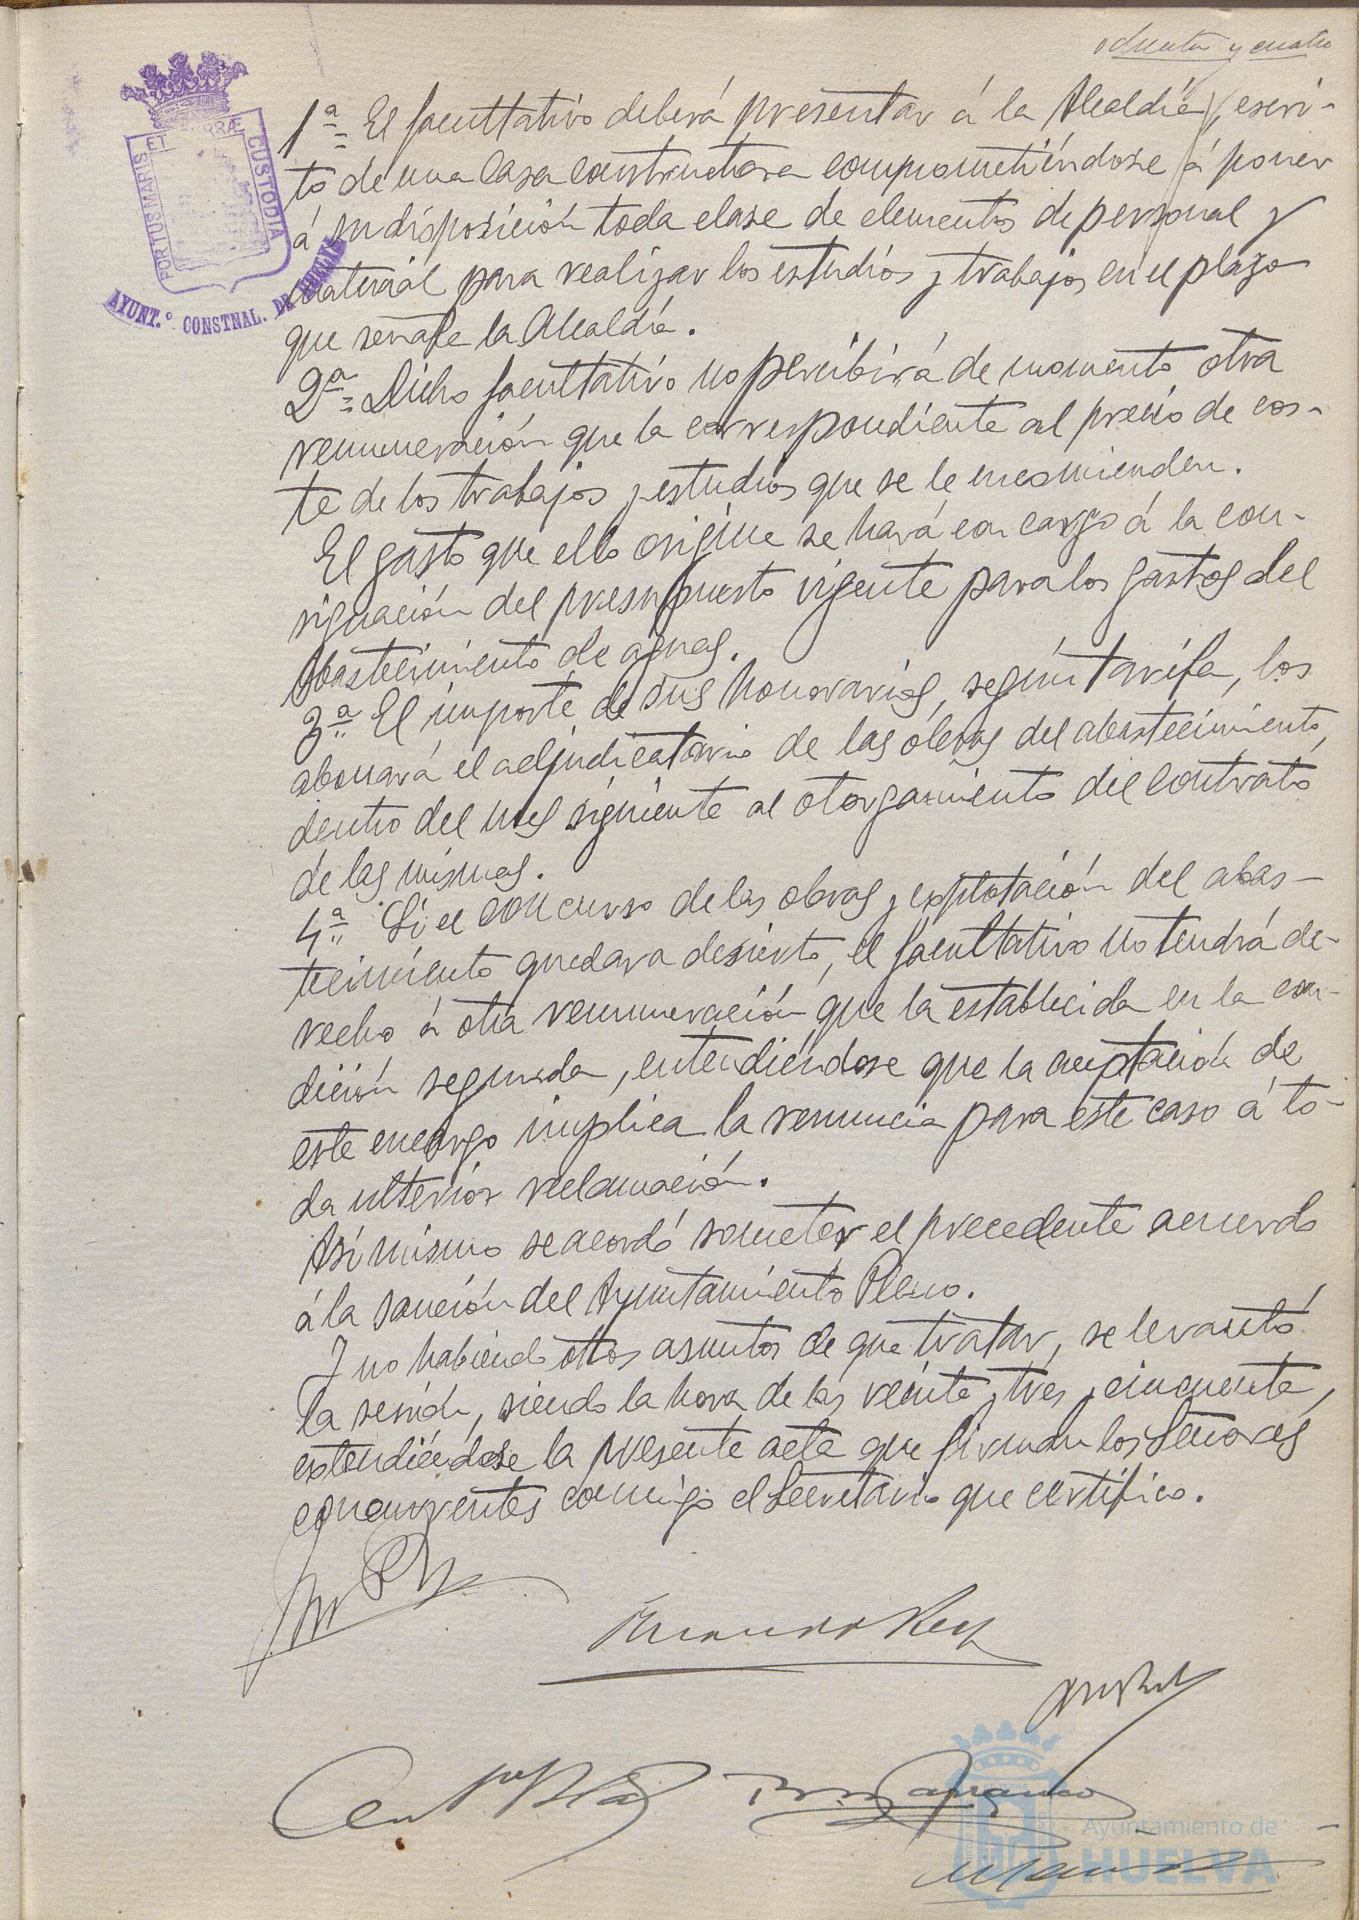 ochenta y cuatro
PORTUS MARIS ET TERRÆ CUSTODIA
AYUNT.º CONSTNAL. DE HUELVA
1ª= El facultativo deberá presentar á la Alcaldía, escri-
to de una Casa constructora comprometiéndose á poner
á su disposición toda clase de elementos de personal y
material para realizar los estudios y trabajos en el plazo
que señale la Alcaldía.
2ª= Dicho facultativo no percibirá de momento otra
remuneración que la correspondiente al precio de cos-
te de los trabajos y estudios que se le encomienden.
El gasto que ello origine se hará con cargo á la con-
signación del presupuesto vigente para los gastos del
abastecimiento de aguas.
3ª= El importe de sus honorarios, según tarifa, los
abonará el adjudicatario de las obras del abastecimiento,
dentro del mes siguiente al otorgamiento del contrato
de las mismas.
4ª= Si el concurso de las obras y explotación del abas-
tecimiento quedara desierto, el facultativo no tendrá de-
recho á otra remuneración que la establecida en la con-
dición segunda, entendiéndose que la aceptación de
este encargo implica la renuncia para este caso á to-
da ulterior reclamación.
Así mismo se acordó someter el precedente acuerdo
á la sanción del Ayuntamiento Pleno.
Y no habiendo otros asuntos de que tratar, se levantó
la sesión, siendo la hora de las veinte y tres y cincuenta,
extendiéndose la presente acta que firman los Señores
concurrentes conmigo el Secretario que certifico.
Ayuntamiento de
HUELVA